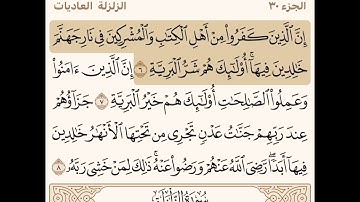 الجزء ٣٠ الزلزلة العاديات
إِنَّ ٱلَّذِينَ كَفَرُوا۟ مِنْ أَهْلِ ٱلْكِتَٰبِ وَٱلْمُشْرِكِينَ فِى نَارِ جَهَنَّمَ
خَٰلِدِينَ فِيهَآ ۚ أُو۟لَٰٓئِكَ هُمْ شَرُّ ٱلْبَرِيَّةِ ٦ إِنَّ ٱلَّذِينَ ءَامَنُوا۟
وَعَمِلُوا۟ ٱلصَّٰلِحَٰتِ أُو۟لَٰٓئِكَ هُمْ خَيْرُ ٱلْبَرِيَّةِ ٧ جَزَآؤُهُمْ
عِندَ رَبِّهِمْ جَنَّٰتُ عَدْنٍ تَجْرِى مِن تَحْتِهَا ٱلْأَنْهَٰرُ خَٰلِدِينَ
فِيهَآ أَبَدًا ۖ رَّضِىَ ٱللَّهُ عَنْهُمْ وَرَضُوا۟ عَنْهُ ۚ ذَٰلِكَ لِمَنْ خَشِىَ رَبَّهُۥ ٨
سُورَةُ الزَّلْزَلَةِ